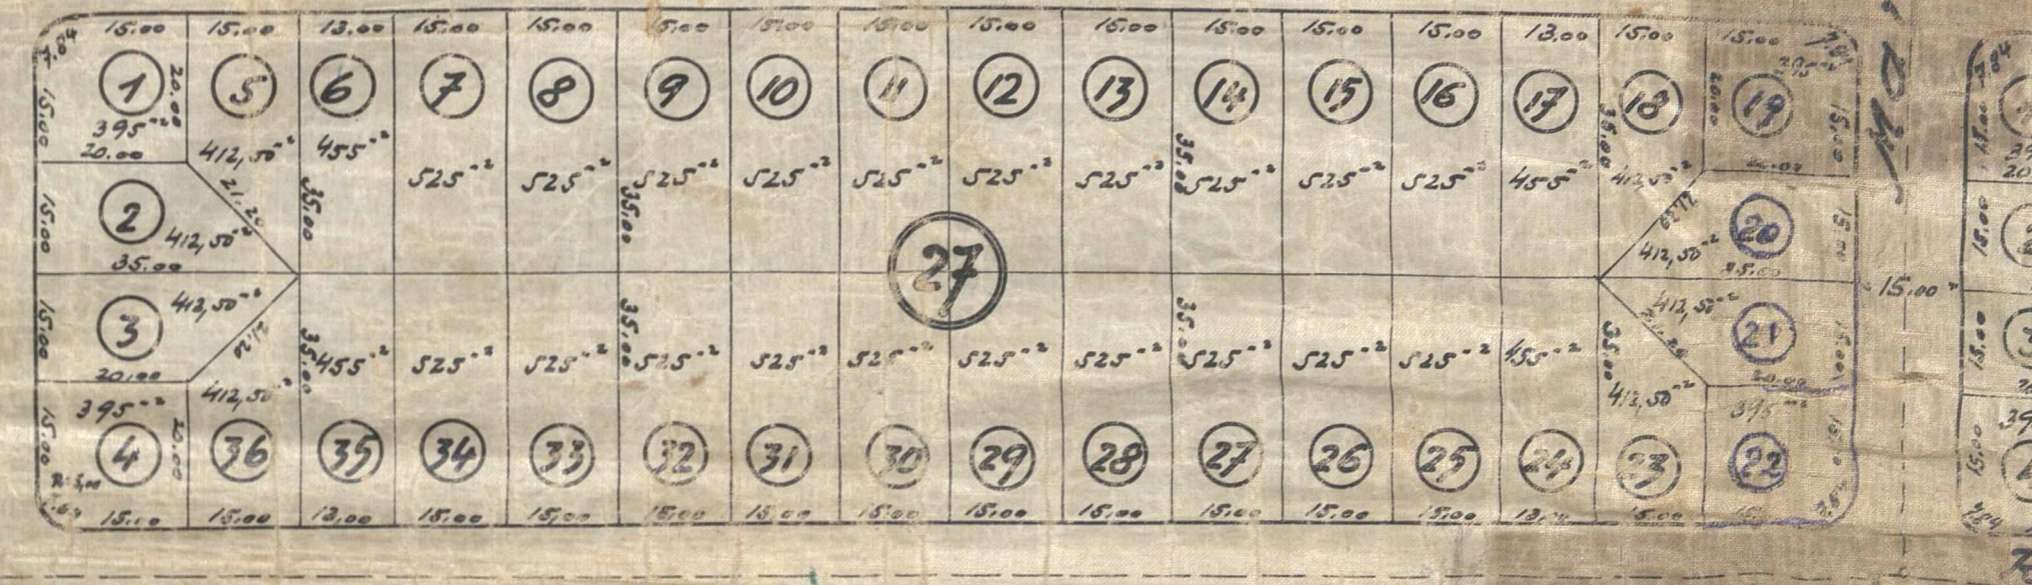 15.00 15.00 13.00 15.00 15.00 15.00 15.00 15.00 15.00 15.00 15.00 15.00 15.00 13.00 15.00 15.00
7.84
1 5 6 7 8 9 10 11 12 13 14 15 16 17 18 19
15.00 20.00 35.00 20.00 15.00
395 m²
20.00
412,50 m² 455 m² 525 m² 525 m² 525 m² 525 m² 525 m² 525 m² 525 m² 525 m² 525 m² 525 m² 455 m² 412,50 m²
21.20 35.00 35.00 35.00
15.00 2 412,50 m² 412,50 m² 20 15.00
35.00
27
15.00 3 412,50 m² 412,50 m² 21
21.20 35.00 35.00 35.00 35.00
20.00
412,50 m² 455 m² 525 m² 525 m² 525 m² 525 m² 525 m² 525 m² 525 m² 525 m² 525 m² 525 m² 455 m² 412,50 m²
395 m² 395 m²
15.00 20.00
4 36 35 34 33 32 31 30 29 28 27 26 25 24 23 22
15.00 15.00 13.00 15.00 15.00 15.00 15.00 15.00 15.00 15.00 15.00 15.00 15.00 15.00
15.00
15.00
15.00
15.00
15.00